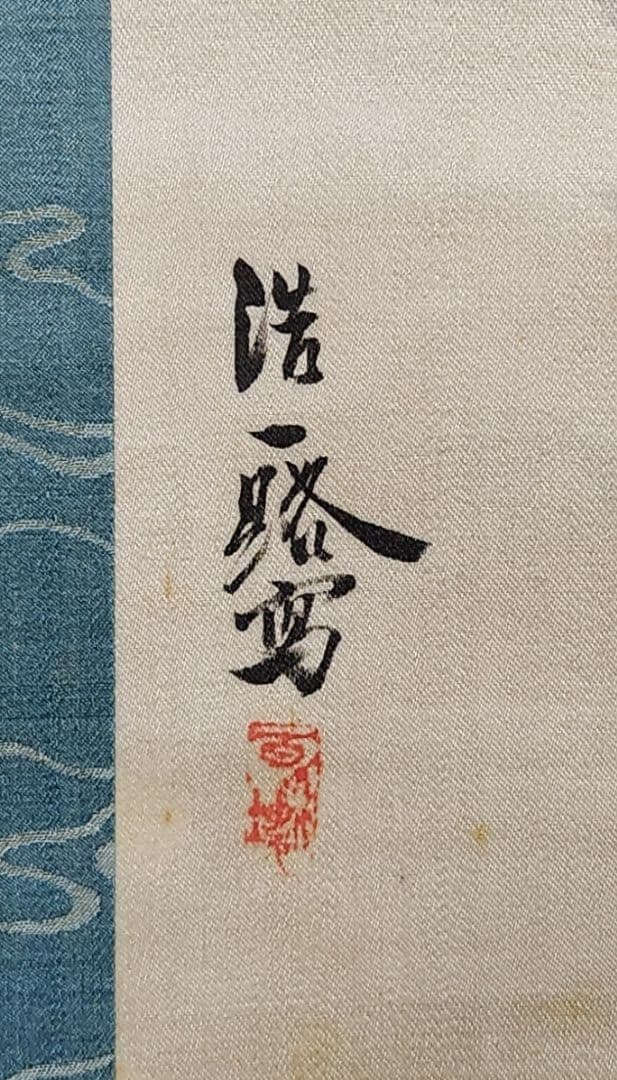 浩一路寫